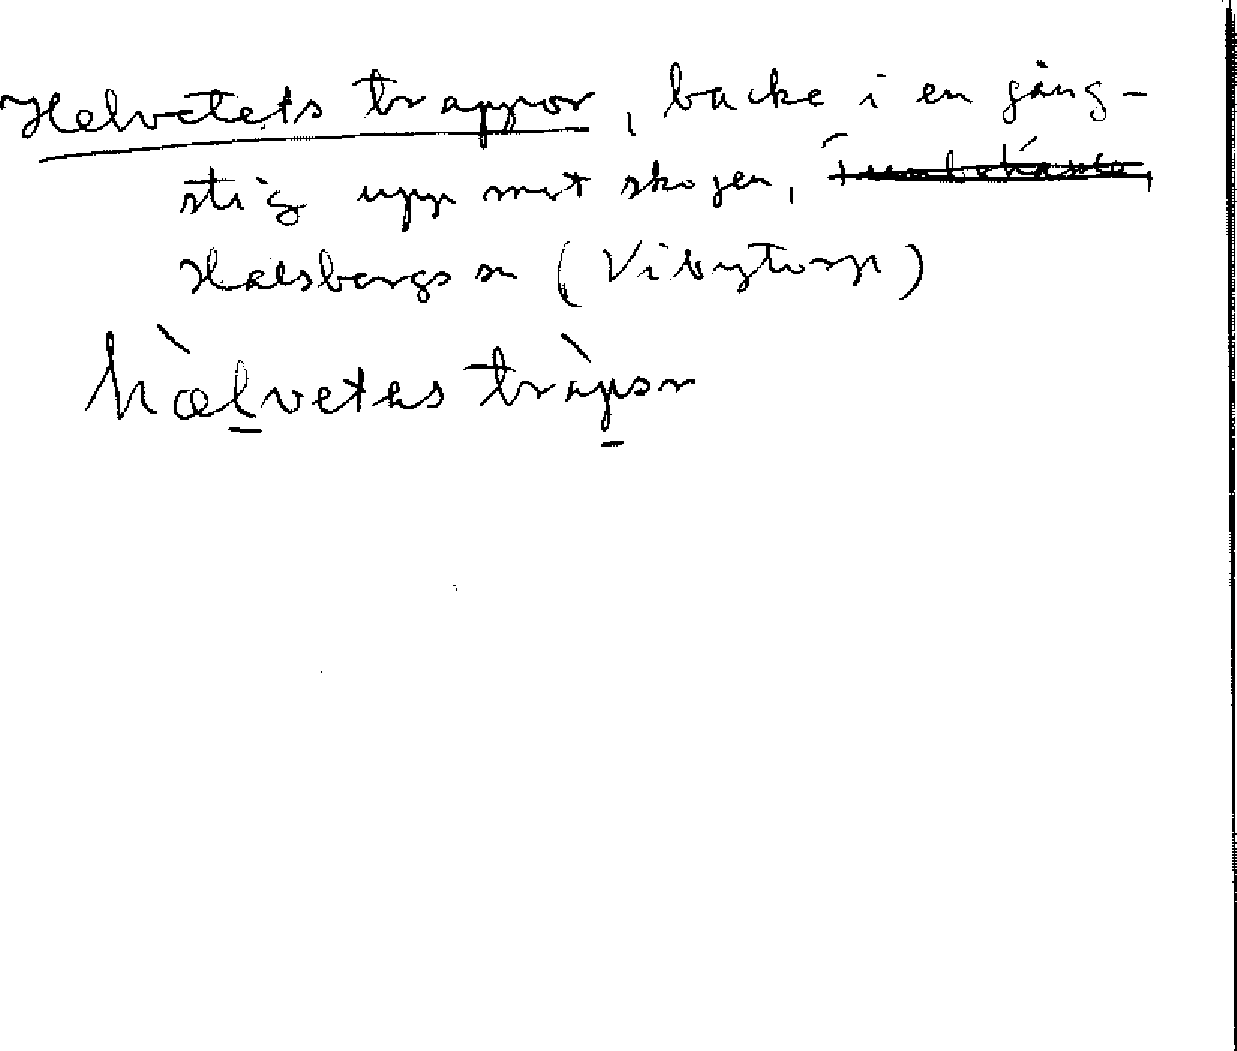 Helvetets trappor, backe i en gång-
stig upp mot skogen,
Halsbergs sn (Vibytorp)
hæ̀lvetas tràpor